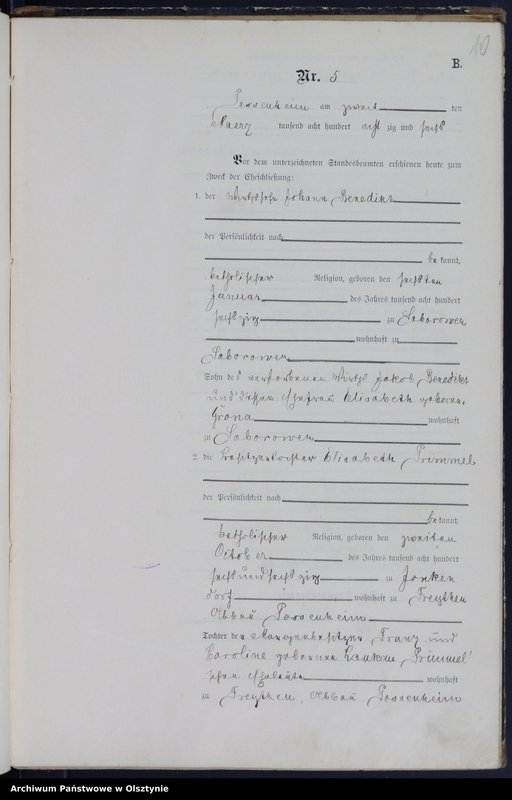 10
B.
Nr. 5
Passenheim am zweit ten
Maerz tausend acht hundert acht zig und sechs
Vor dem unterzeichneten Standesbeamten erschienen heute zum
Zweck der Eheschließung:
1. der Wirthssohn Johann Benedikt
der Persönlichkeit nach
be kannt,
katholischer Religion, geboren den sechsten
Januar des Jahres tausend acht hundert
sechszig zu Saborowen
wohnhaft zu
Saborowen
Sohn des verstorbenen Wirths Jakob Benedikt
und dessen Ehefrau Elisabeth geborene
Grona wohnhaft
zu Saborowen
2. die Besitzertochter Elisabeth Primmel
der Persönlichkeit nach
be kannt,
katholischer Religion, geboren den zweiten
October des Jahres tausend acht hundert
sechsundsechszig zu Jonken
dorf wohnhaft zu Freythen
Abbau Passenheim
Tochter der Franz und
Caroline geborene Primmel
schen Eheleute wohnhaft
zu Freythen, Abbau Passenheim
Archiwum Państwowe w Olsztynie